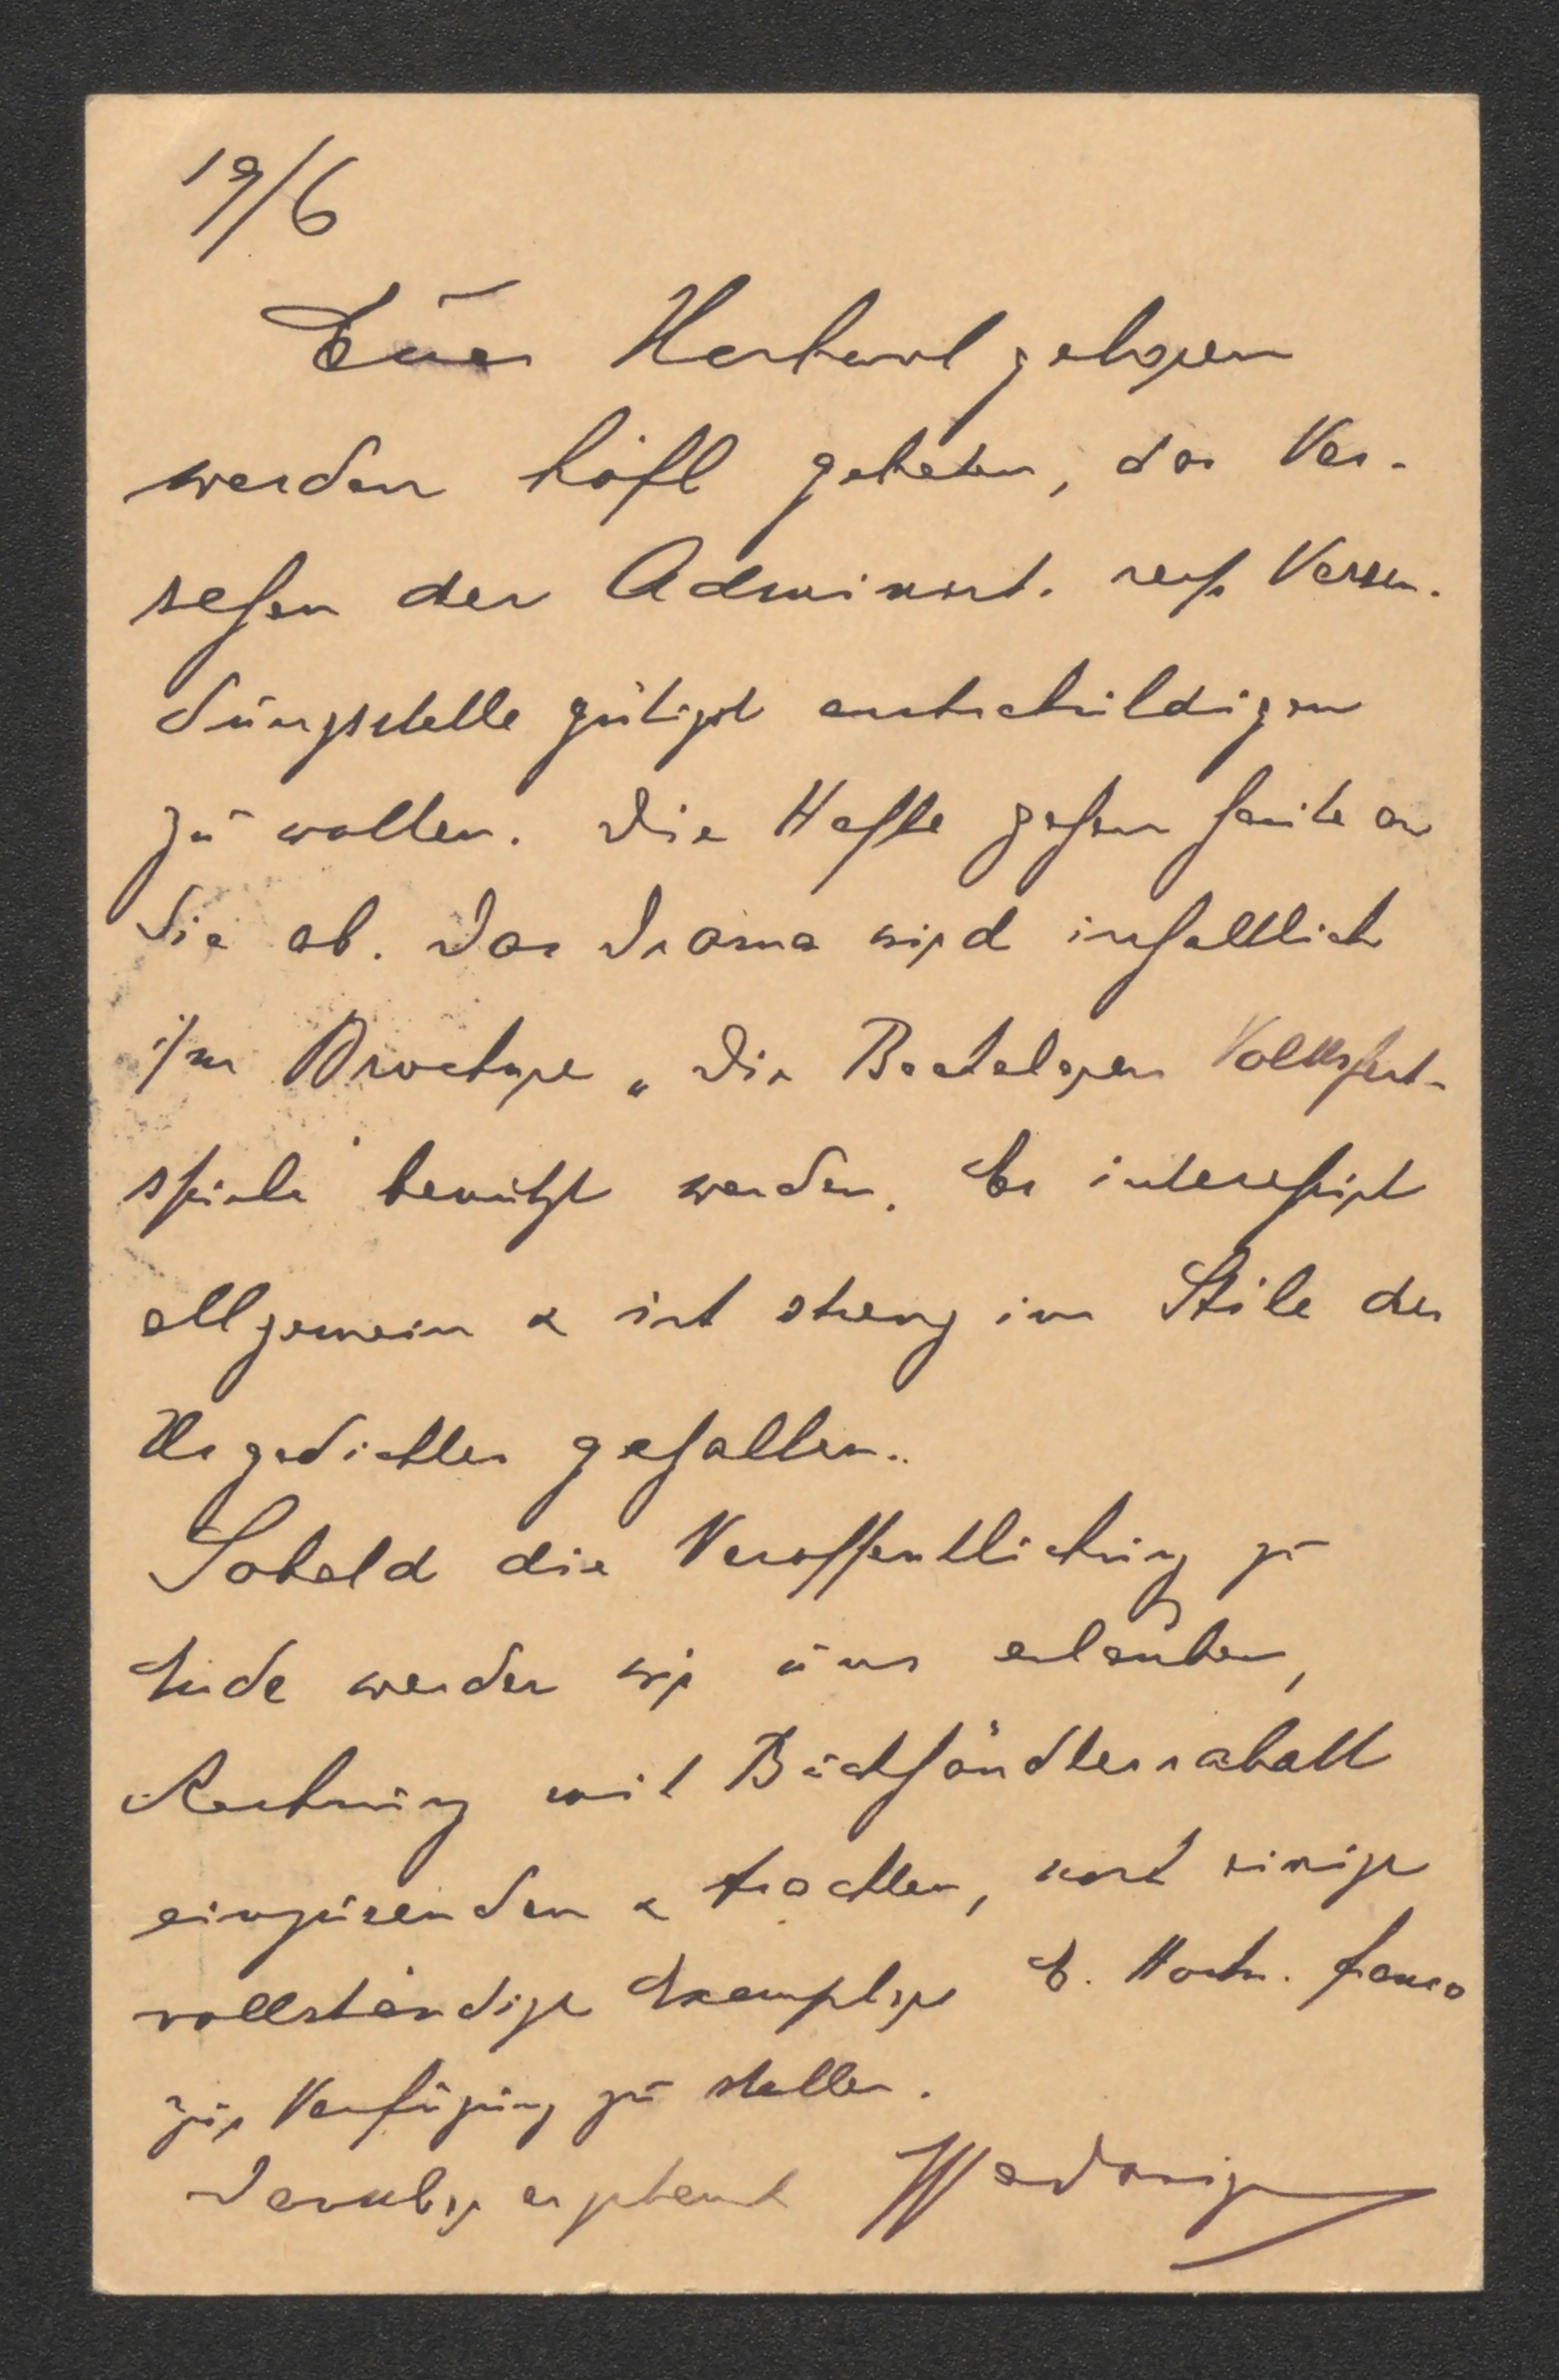 19/6
Euer Hochwohlgeboren
werden höfl gebeten, das Ver-
sehen der Administ. resp Versen-
dungsstelle gütigst entschuldigen
zu wollen. Die Hefte gehen heute an
Sie ab. Das Drama wird inhaltlich
Broschüre „Die Volksfest-
spiele" benützt werden. Es interessirt
allgemein & ist streng im Stile des
Urgedichtes gehalten.
Sobald die Veröffentlichung zu
Ende werden wir uns erlauben,
Rechnung mit Buchhändlerrabatt
einzusenden & trachten, noch einige
vollständige Exemplare E. Hochw. franco
zur Verfügung zu stellen.
ergebenst